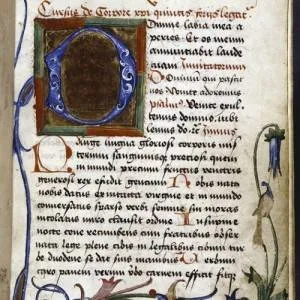 Cursus de Corpore xpi quintis ferijs legat'
Domine labia mea a
peries Et os meum
annunciabit laude
tuam Invitatorium
Dominum qui pascit
nos Venite adoremus
psalmus Venite exul
temus domino iubi
lemus do ze ymnus
Pange lingua gloriosi corporis mis
terium sanguinisque preciosi quem
in mundi precium fructus ventris
generosi rex effudit gentium Nobis nata
nobis datus ex intacta virgine et in mundo
conversatus sparso verbi semine sui moras
incolatus miro clausit ordine In supreme
nocte cene recumbens cum fratribus obser
vata lege plene cibis in legalibus cibum tur
be duodene se dat suis manibus Verbum
caro panem verum vbo carnem efficit fitq3